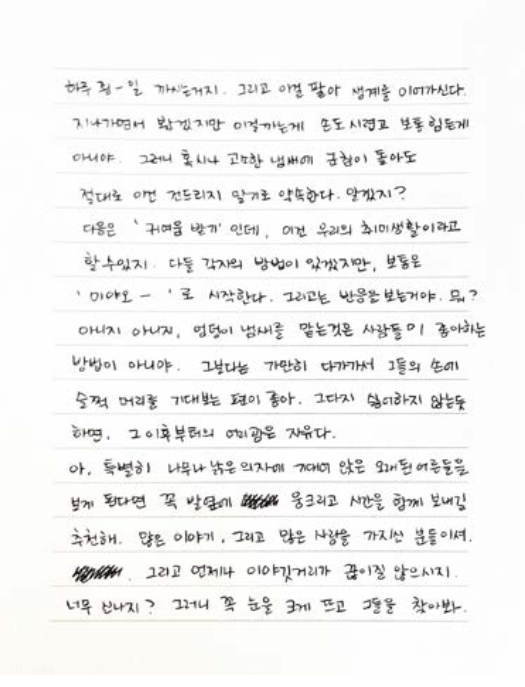 하루 종-일 까시는거지. 그리고 이걸 팔아 생계를 이어가신다.
지나가면서 봤겠지만 이걸까는게 손도 시렵고 보통 힘든게
아니야. 그러니 혹시나 고소한 냄새에 군침이 돌아도
절대로 이건 건드리지 않기로 약속한다. 알겠지?
다음은 '귀여움 받기' 인데, 이건 우리의 취미생활이라고
할 수 있지. 다들 각자의 방법이 있겠지만, 보통은
'미야오 - ' 로 시작한다. 그리고는 반응을 보는거야. 뭐?
아니지 아니지, 엉덩이 냄새를 맡는것은 사람들이 좋아하는
방법이 아니야. 그보다는 가만히 다가가서 그들의 손에
슬쩍 머리를 기대보는 편이 좋아. 그다지 싫어하지 않는듯
하면, 그 이후부터의 어리광은 자유다.
아, 특별히 나무나 낡은 의자에 기대어 앉은 오래된 어른들을
보게 된다면 꼭 발 옆에 웅크리고 시간을 함께 보내길
추천해. 많은 이야기, 그리고 많은 사랑을 가지신 분들이셔.
그리고 언제나 이야깃거리가 끊이질 않으시지.
너무 신나지? 그러니 꼭 눈을 크게 뜨고 그들을 찾아봐.